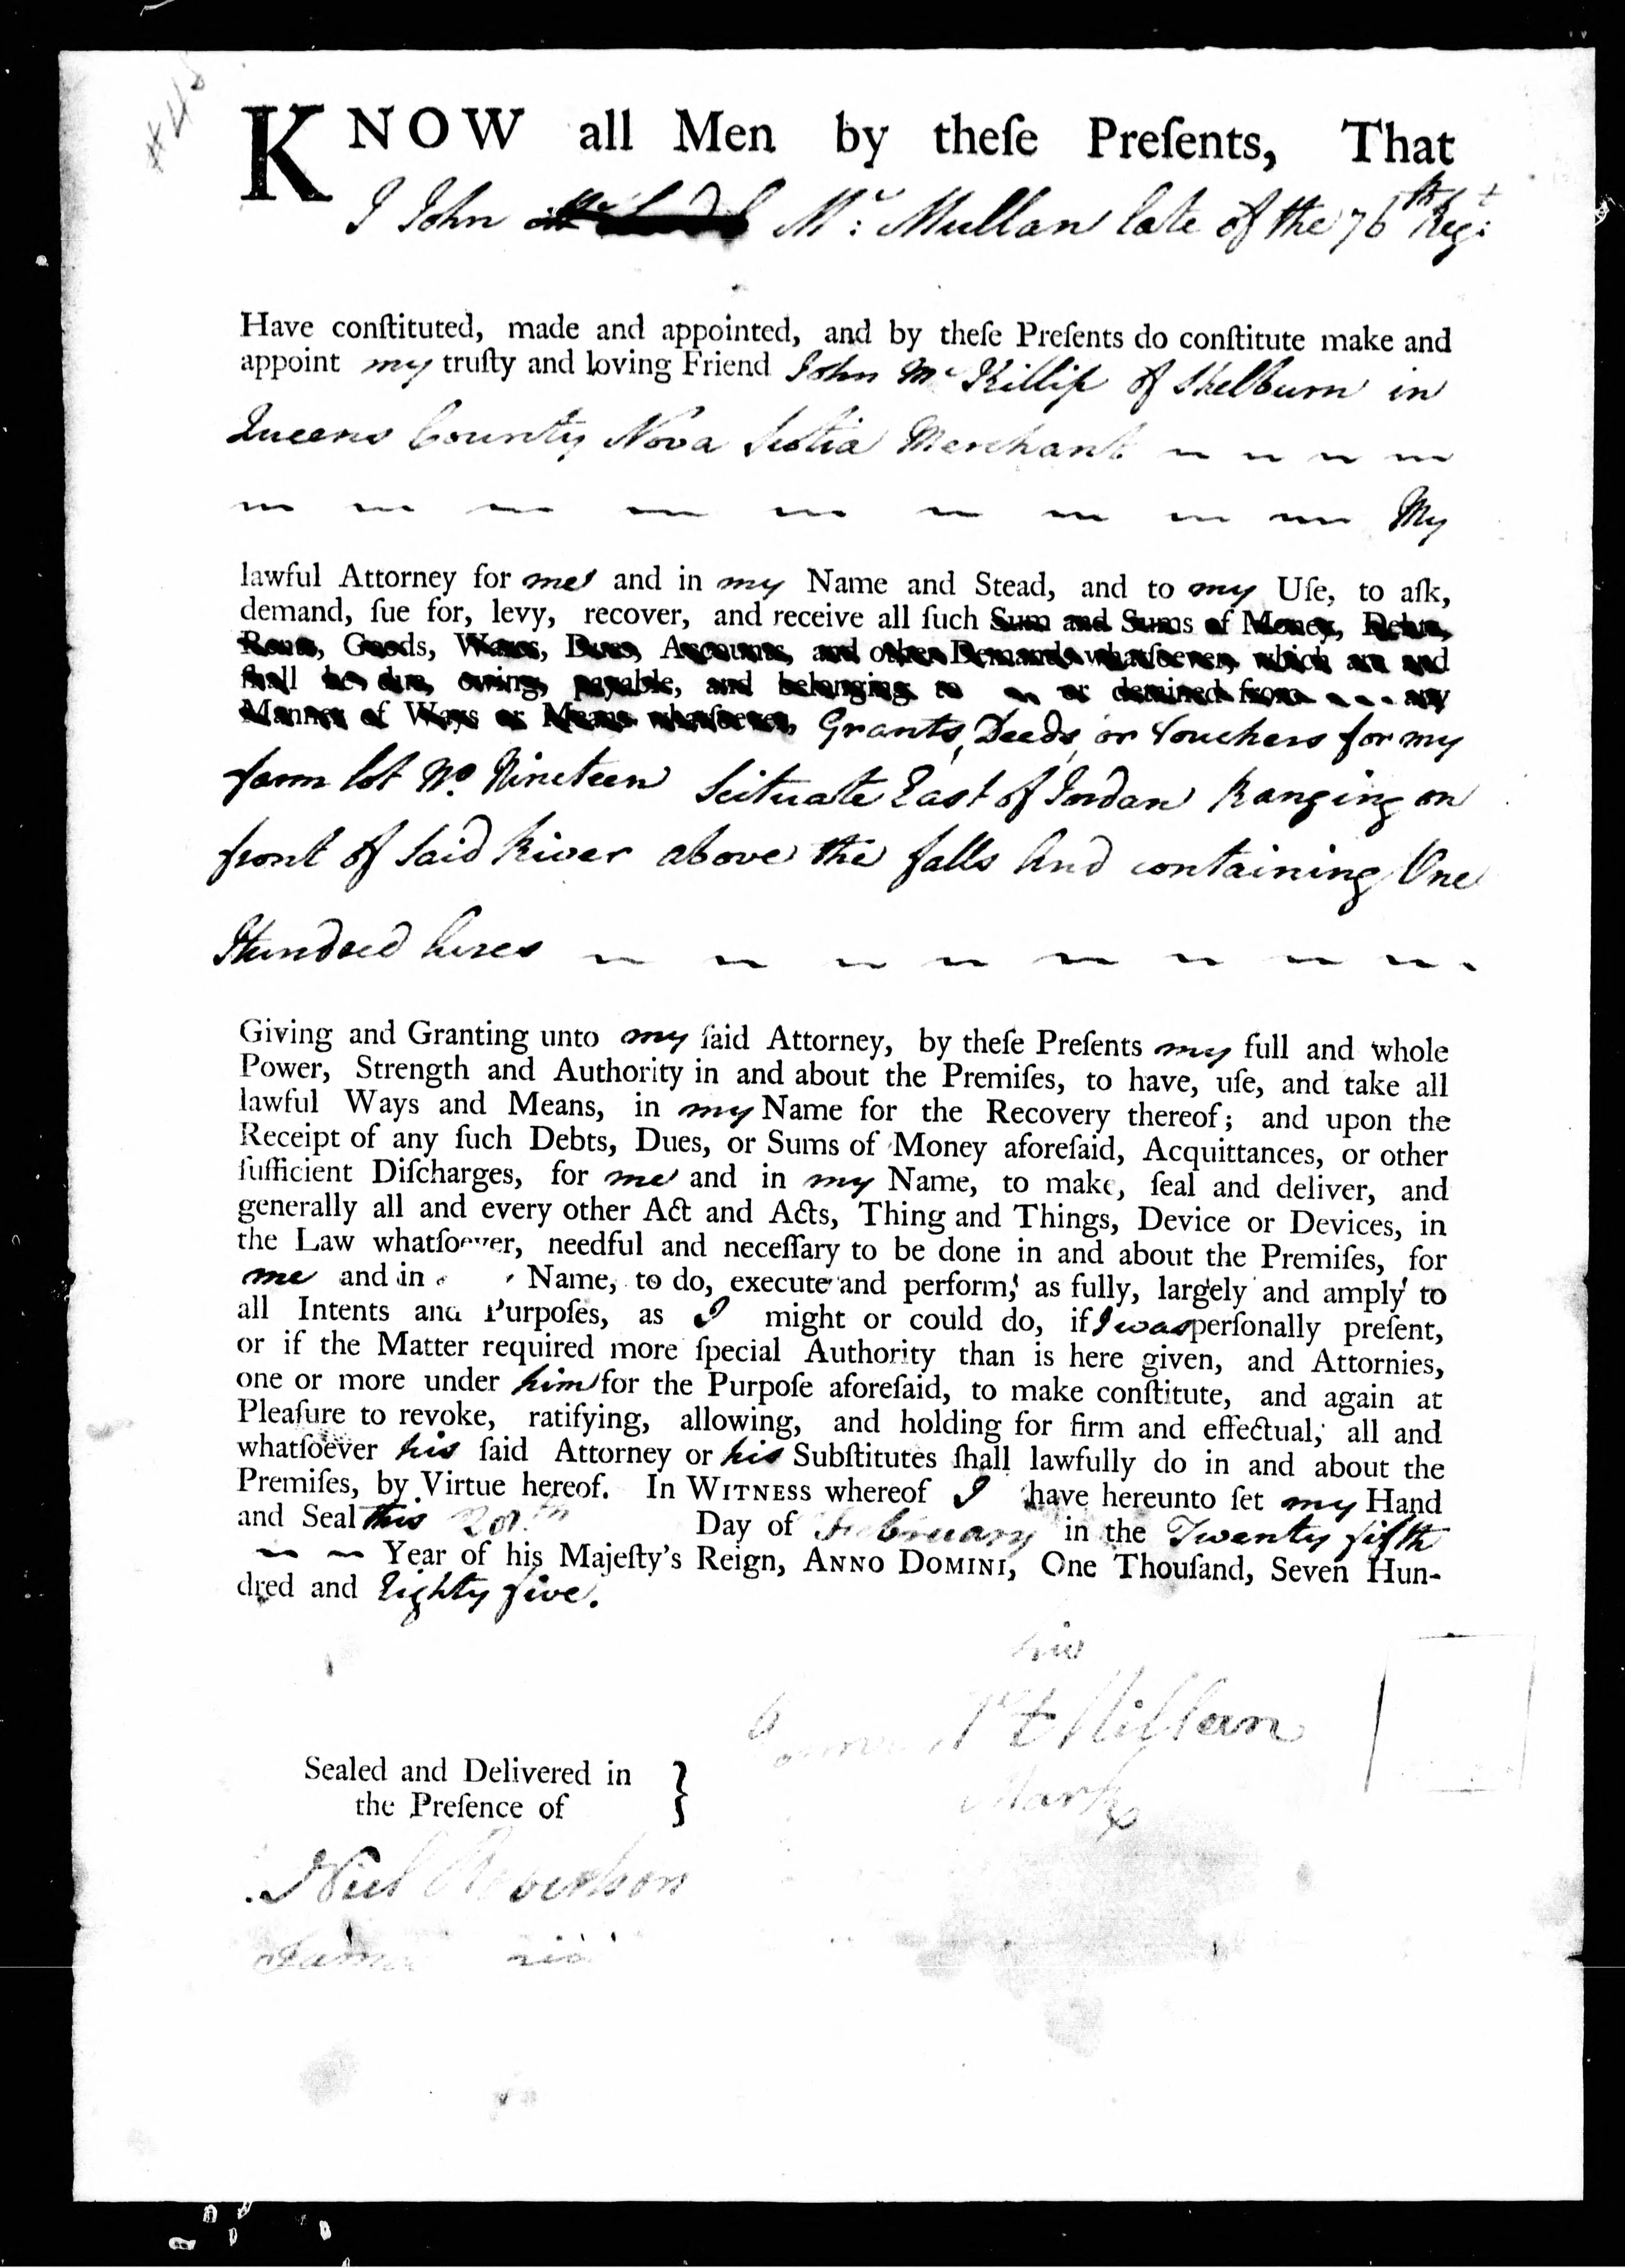 KNOW all Men by theſe Preſents, That
I John Mc: Mullan late of the 76th Regt:
Have conſtituted, made and appointed, and by theſe Preſents do conſtitute make and
appoint my truſty and loving Friend John Mc Killip of Shelburn in
Queens County Nova Scotia Merchant
My
lawful Attorney for me and in my Name and Stead, and to my Uſe, to aſk,
demand, ſue for, levy, recover, and receive all ſuch Sum and Sums of Money, Debts,
Rents, Goods, Wares, Dues, Accounts, and other Demands whatſoever, which are and
ſhall be due, owing, payable, and belonging to or detained from any
Manner of Ways or Means whatſoever, Grants, Deeds, or Vouchers for my
farm lot No. Nineteen Scituate East of Jordan Ranging on
front of Said River above the falls And containing One
Hundred Acres
Giving and Granting unto my ſaid Attorney, by theſe Preſents my full and whole
Power, Strength and Authority in and about the Premiſes, to have, uſe, and take all
lawful Ways and Means, in my Name for the Recovery thereof; and upon the
Receipt of any ſuch Debts, Dues, or Sums of Money aforeſaid, Acquittances, or other
ſufficient Diſcharges, for me and in my Name, to make, ſeal and deliver, and
generally all and every other Act and Acts, Thing and Things, Device or Devices, in
the Law whatſoever, needful and neceſſary to be done in and about the Premiſes, for
me and in Name, to do, execute and perform, as fully, largely and amply to
all Intents and Purpoſes, as I might or could do, if I was perſonally preſent,
or if the Matter required more ſpecial Authority than is here given, and Attornies,
one or more under him for the Purpoſe aforeſaid, to make conſtitute, and again at
Pleaſure to revoke, ratifying, allowing, and holding for firm and effectual, all and
whatſoever his ſaid Attorney or his Subſtitutes ſhall lawfully do in and about the
Premiſes, by Virtue hereof. In WITNESS whereof I have hereunto ſet my Hand
and Seal this Day of February in the Twenty fifth
Year of his Majeſty's Reign, ANNO DOMINI, One Thouſand, Seven Hun-
dred and Eighty five.
his
Millan
Mark
Sealed and Delivered in
the Preſence of
Niel